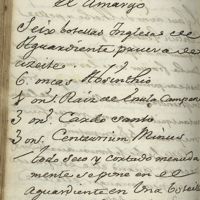 el Amargo
Seix botellas Inglesas de
Aguardiente prueva de
azeite.
6 onzas Absinthio
1 ons. Raiz de Enula Campan
3 ons. Cardo santo
3 ons. Centaurium Minus
todo seco y cortado menuda
mente se pone en el
aguardiente en una botell